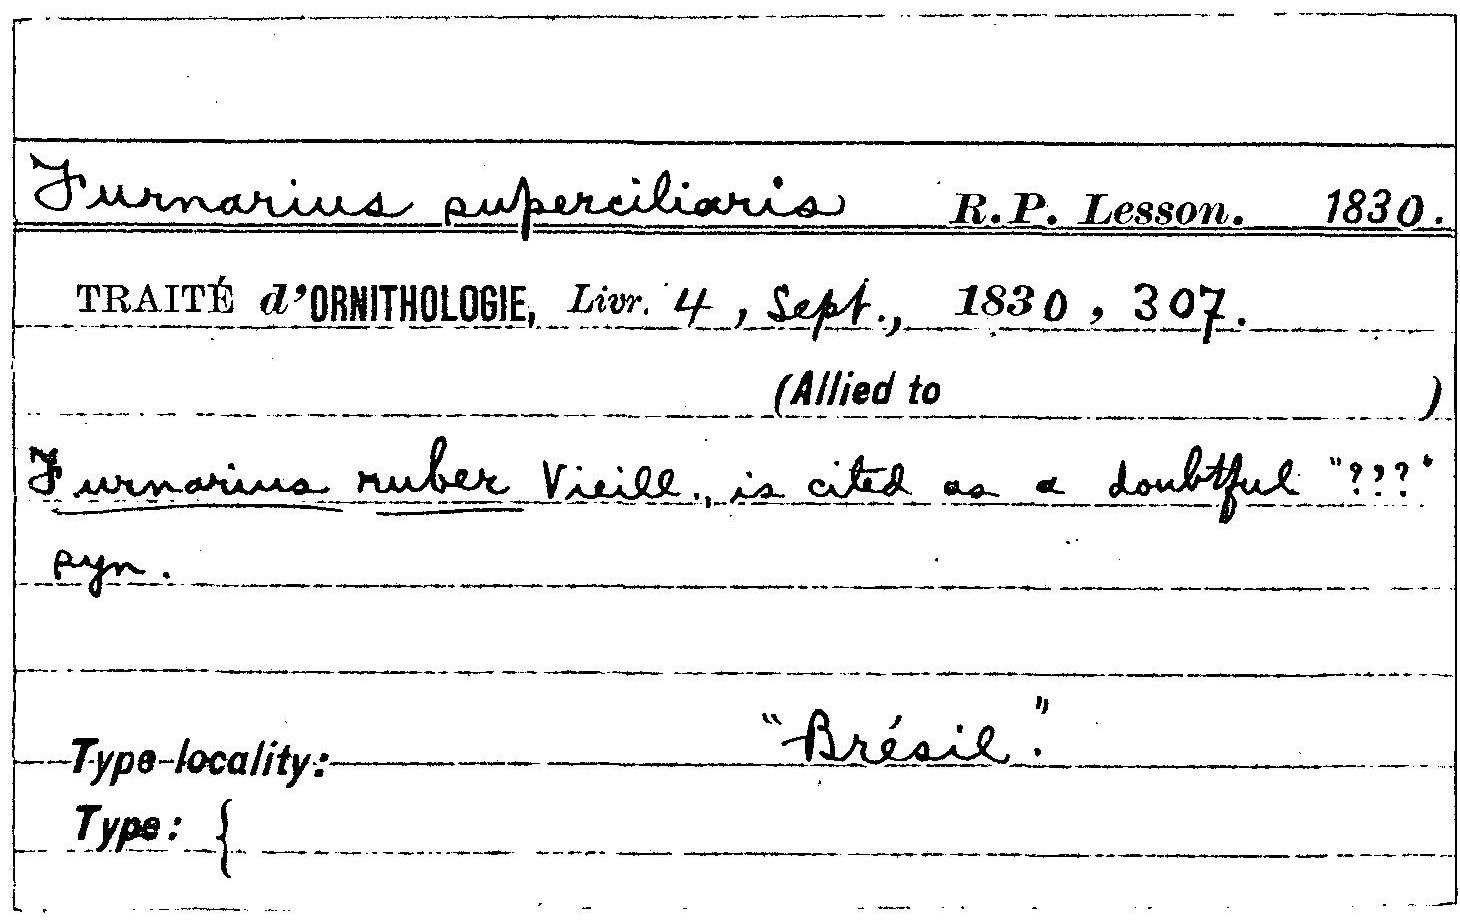 Furnarius superciliaris R.P. Lesson. 1830.
TRAITÉ d'ORNITHOLOGIE, Livr. 4, Sept., 1830, 307.
(Allied to )
Furnarius ruber Vieill., is cited as a doubtful "???"
syn.
Type-locality: "Brésil."
Type: {